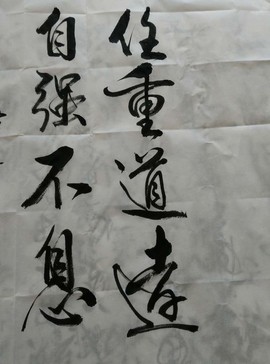 任重道远
自强不息